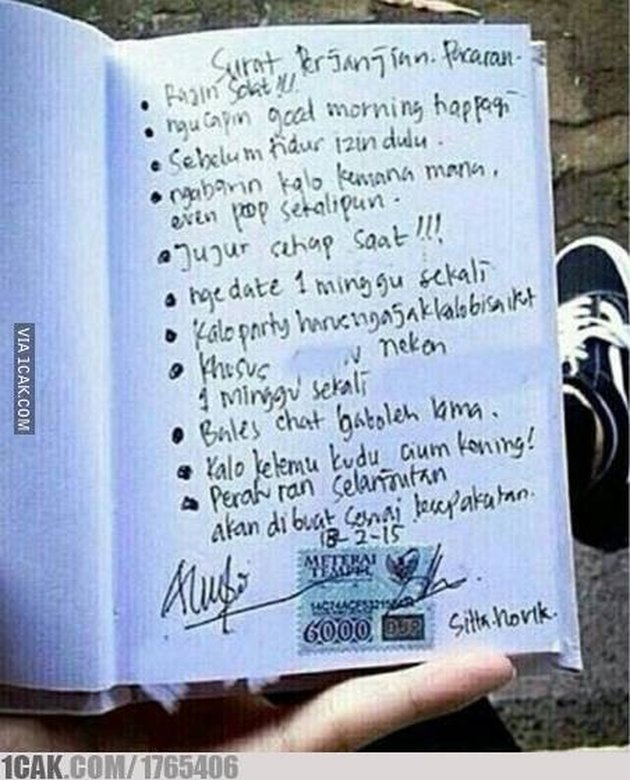 Surat Perjanjian Pacaran.
• Rajin Solat!!!
• ngucapin good morning happagi
• Sebelum tidur izin dulu.
• ngabarin kalo kemana mana,
even poop sekalipun.
• Jujur setiap saat!!!
• ngedate 1 minggu sekali
• Kalo party harus ngajak kalo bisa ikut
• Khusus neken
1 minggu sekali
• Bales chat gaboleh lama.
• Kalo ketemu kudu cium kening!
• Peraturan selanjutan
akan dibuat sesuai kesepakatan.
18-2-15
METERAI
TEMPEL
6000 DJP
Sitta.Novik.
VIA 1CAK.COM
1CAK.COM/1765406